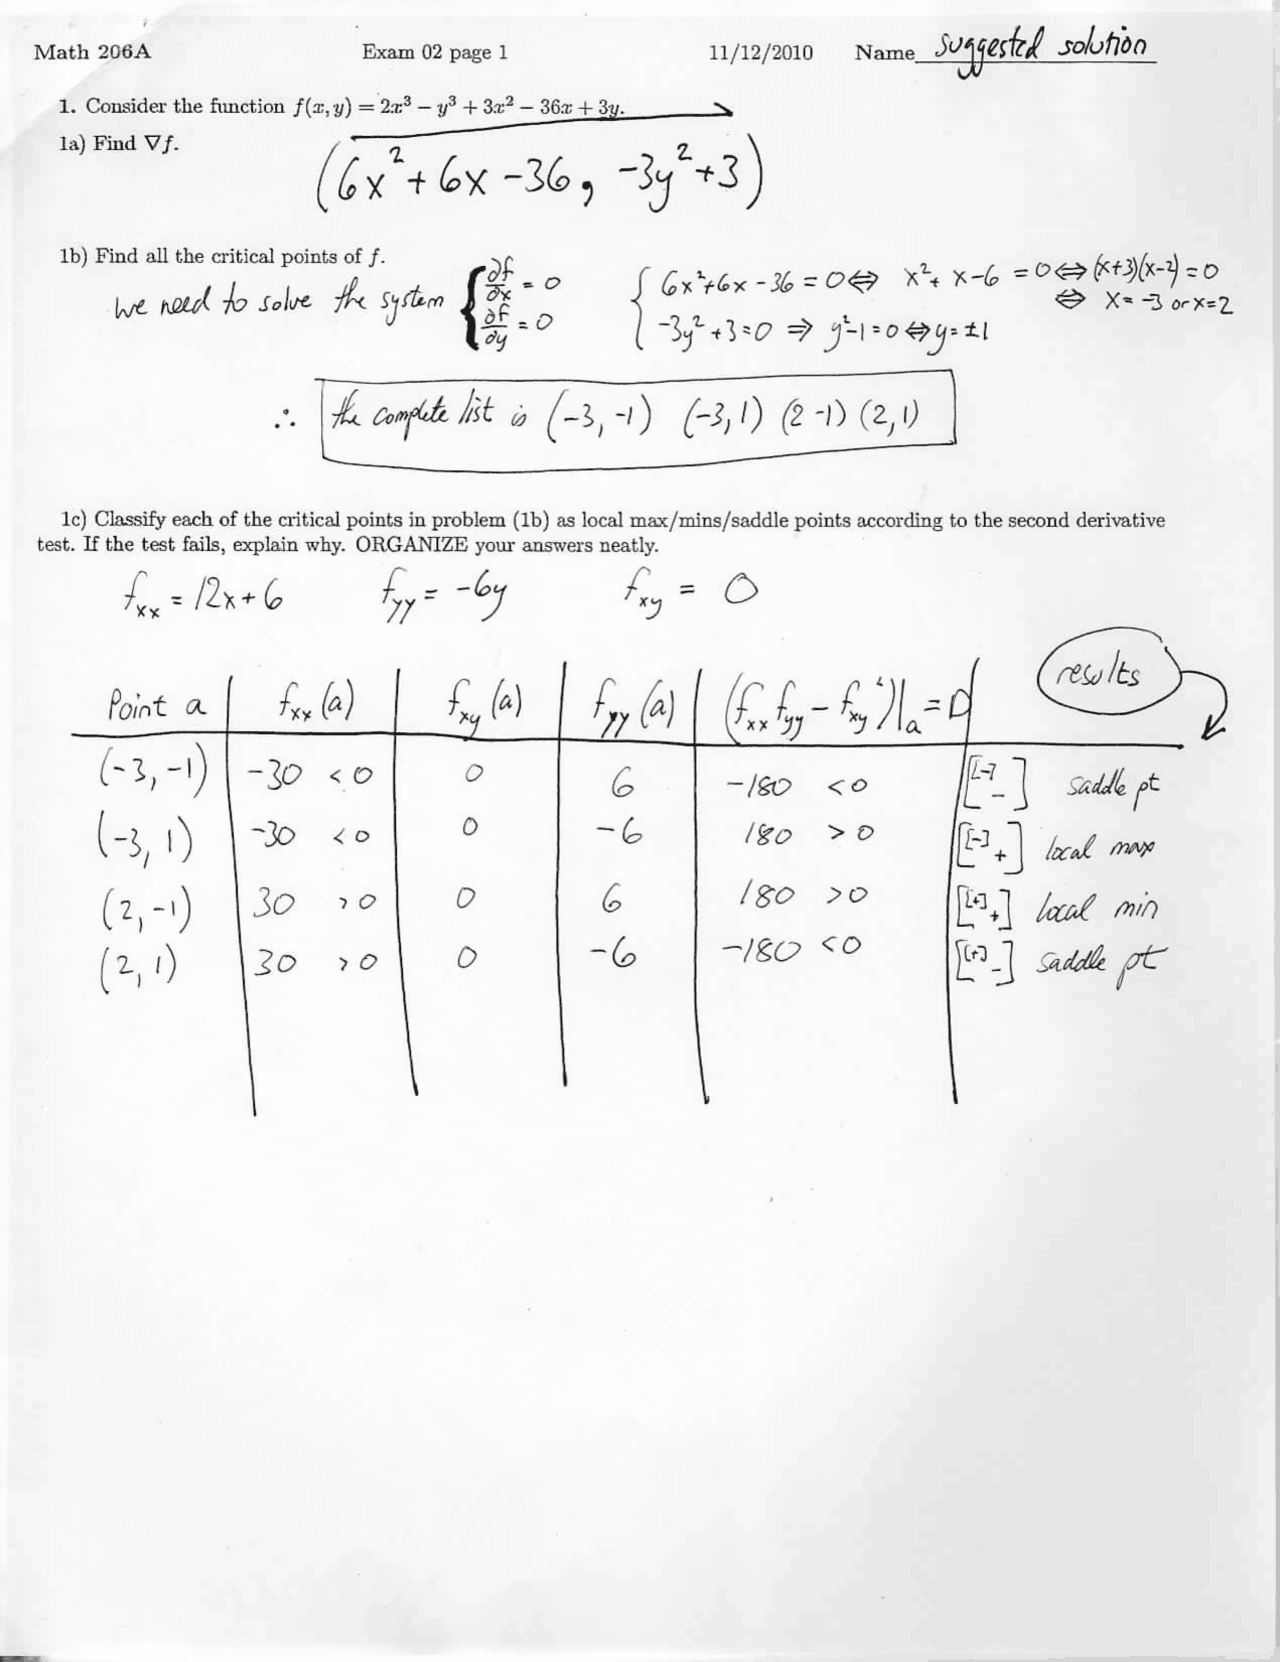 Math 206A Exam 02 page 1 11/12/2010 Name suggested solution
1. Consider the function f(x, y) = 2x³ − y³ + 3x² − 36x + 3y.
1a) Find ∇f.
(6x² + 6x − 36, −3y² + 3)
1b) Find all the critical points of f.
we need to solve the system { ∂f/∂x = 0 { 6x² + 6x − 36 = 0 ⇔ x² + x − 6 = 0 ⇔ (x+3)(x−2) = 0
⇔ x = −3 or x = 2
∂f/∂y = 0 −3y² + 3 = 0 ⇒ y² − 1 = 0 ⇔ y = ±1
∴ the complete list is (−3, −1) (−3, 1) (2 −1) (2, 1)
1c) Classify each of the critical points in problem (1b) as local max/mins/saddle points according to the second derivative
test. If the test fails, explain why. ORGANIZE your answers neatly.
f_xx = 12x + 6 f_yy = −6y f_xy = 0
results
Point a f_xx (a) f_xy (a) f_yy (a) (f_xx f_yy − f_xy²)|_a = D
(−3, −1) −30 < 0 0 6 −180 < 0 [[−] −] saddle pt
(−3, 1) −30 < 0 0 −6 180 > 0 [[−] +] local max
(2, −1) 30 > 0 0 6 180 > 0 [[+] +] local min
(2, 1) 30 > 0 0 −6 −180 < 0 [[+] −] saddle pt